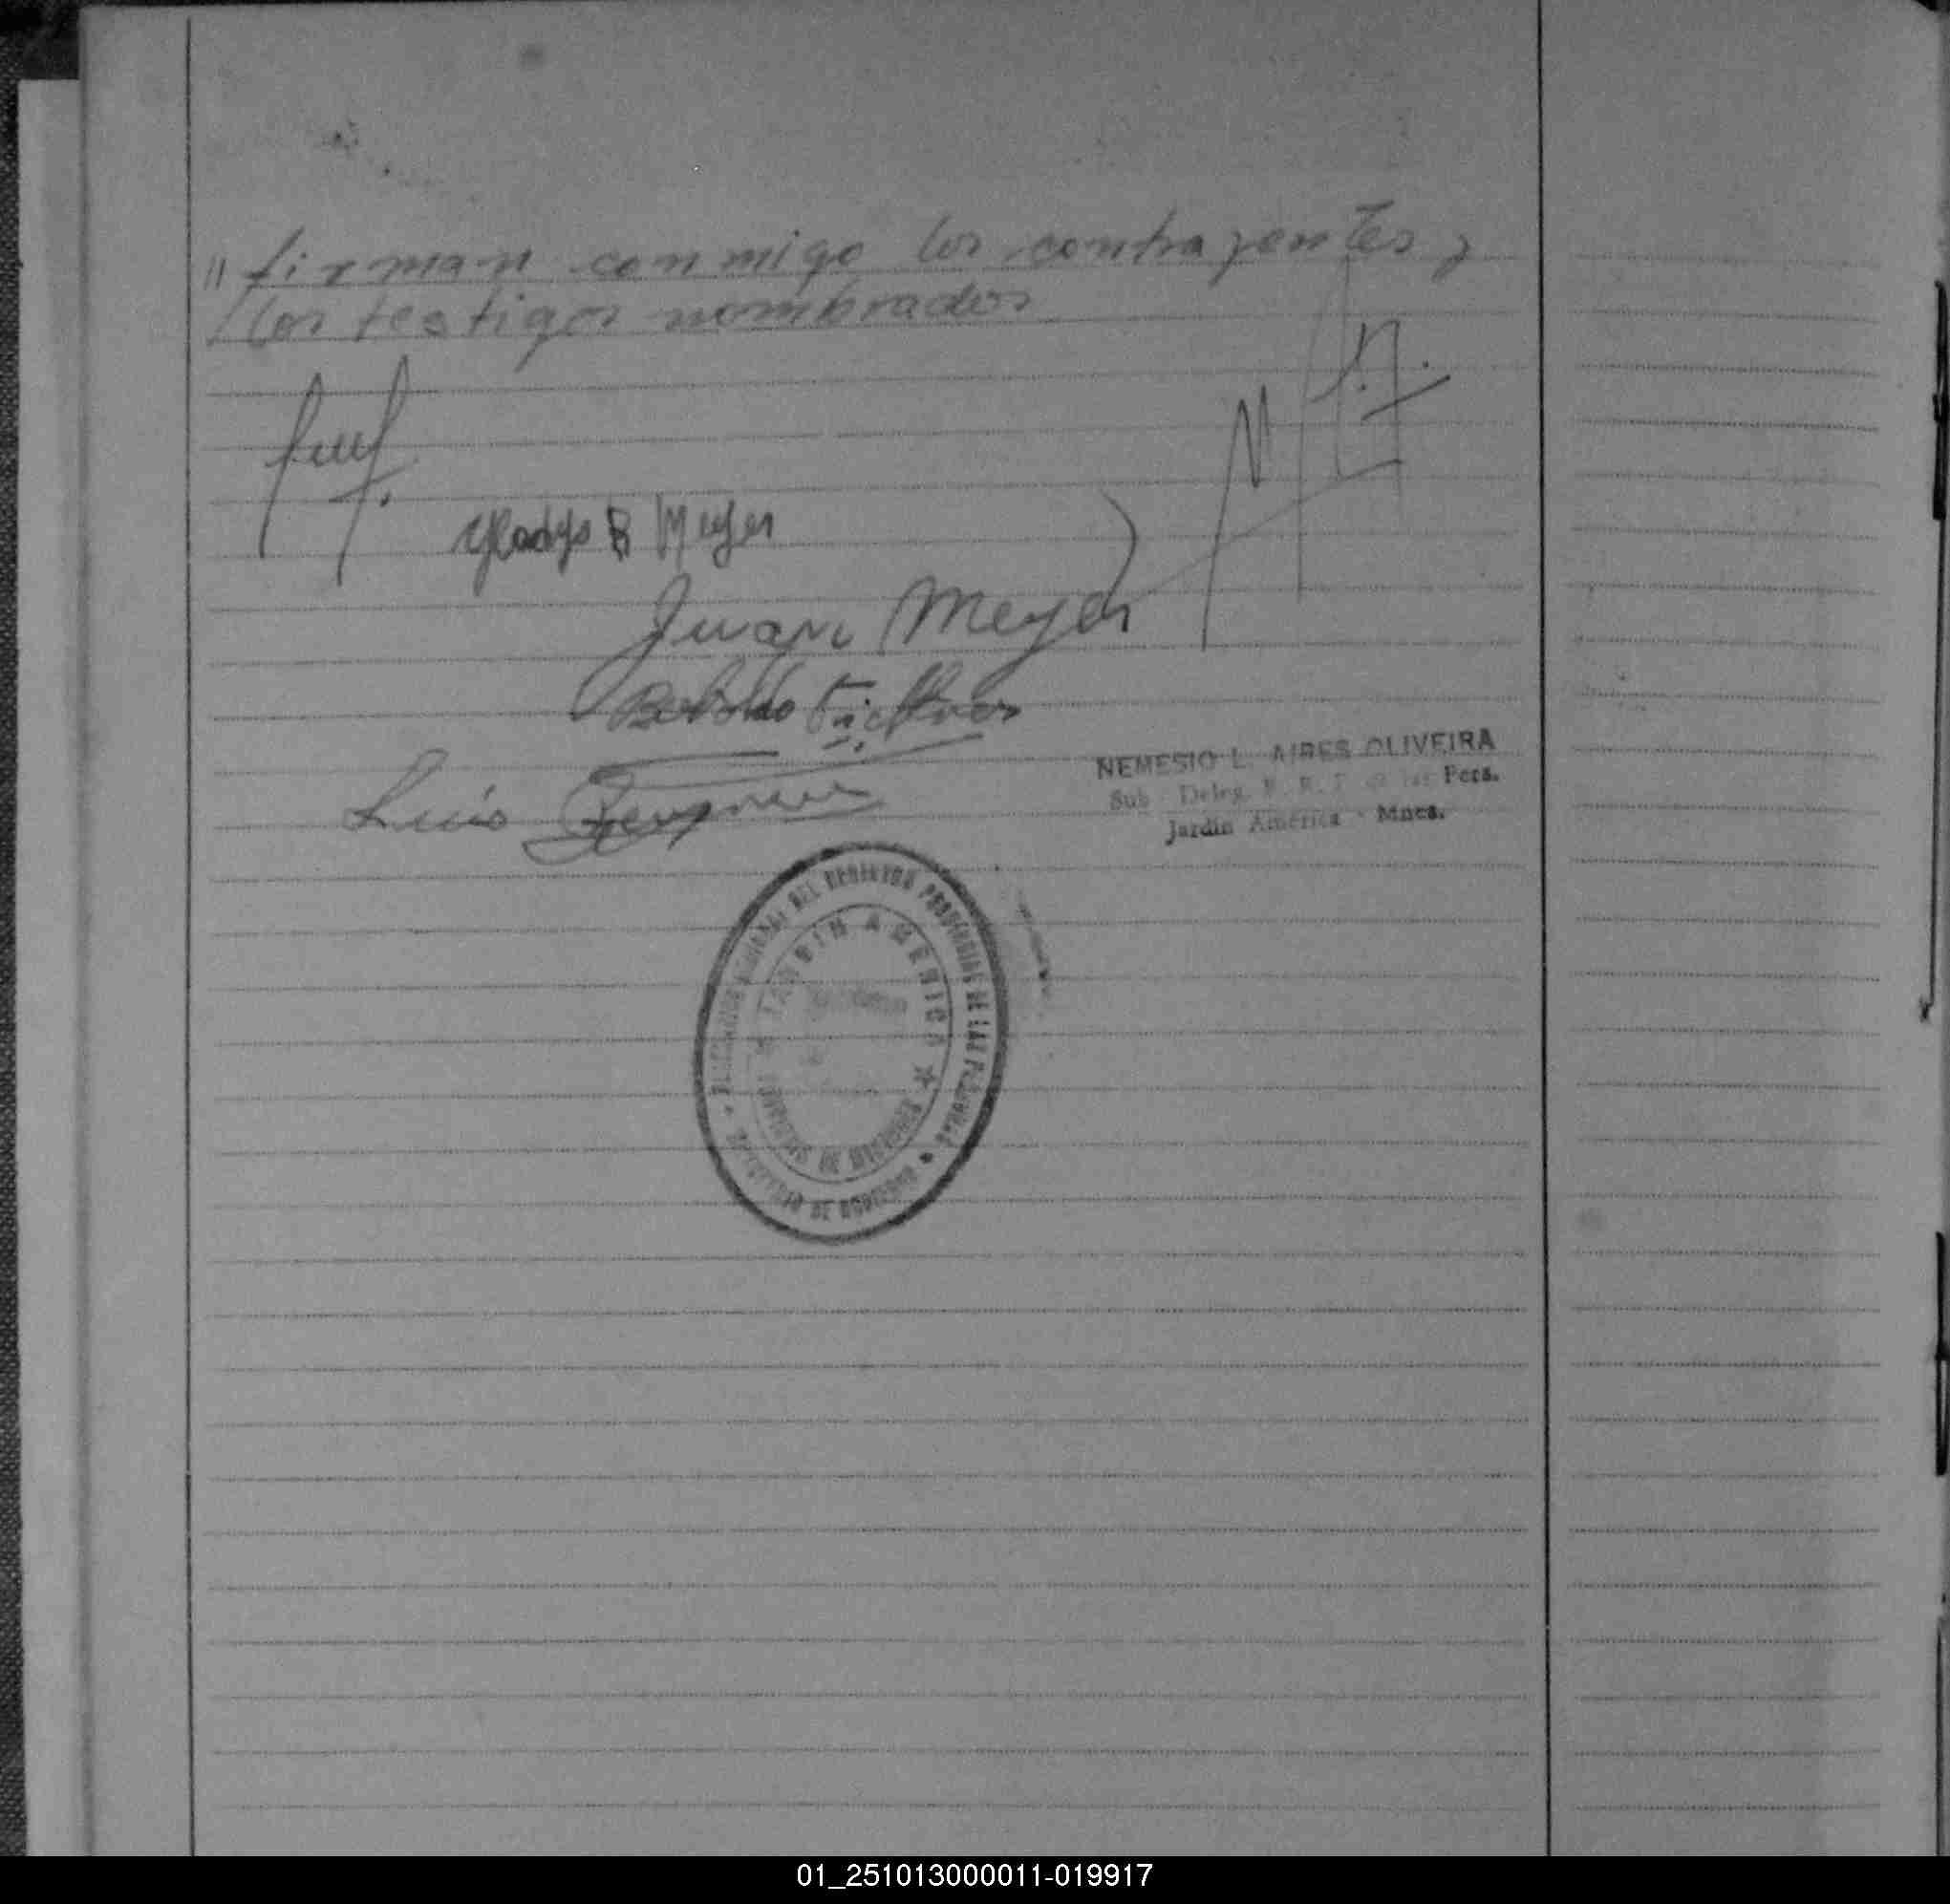 " firman conmigo los contrayentes y
los testigos nombrados
Gladys B Meyer
Juan Meyer
Luis
NEMESIO L. AIRES OLIVEIRA
Sub Deleg. R. R. P. de las Pers.
Jardín América - Mnes.
DEL REGISTRO PROVINCIAL DE LAS PERSONAS
MINISTERIO DE GOBIERNO
JARDIN AMERICA
DE MISIONES
01_251013000011-019917